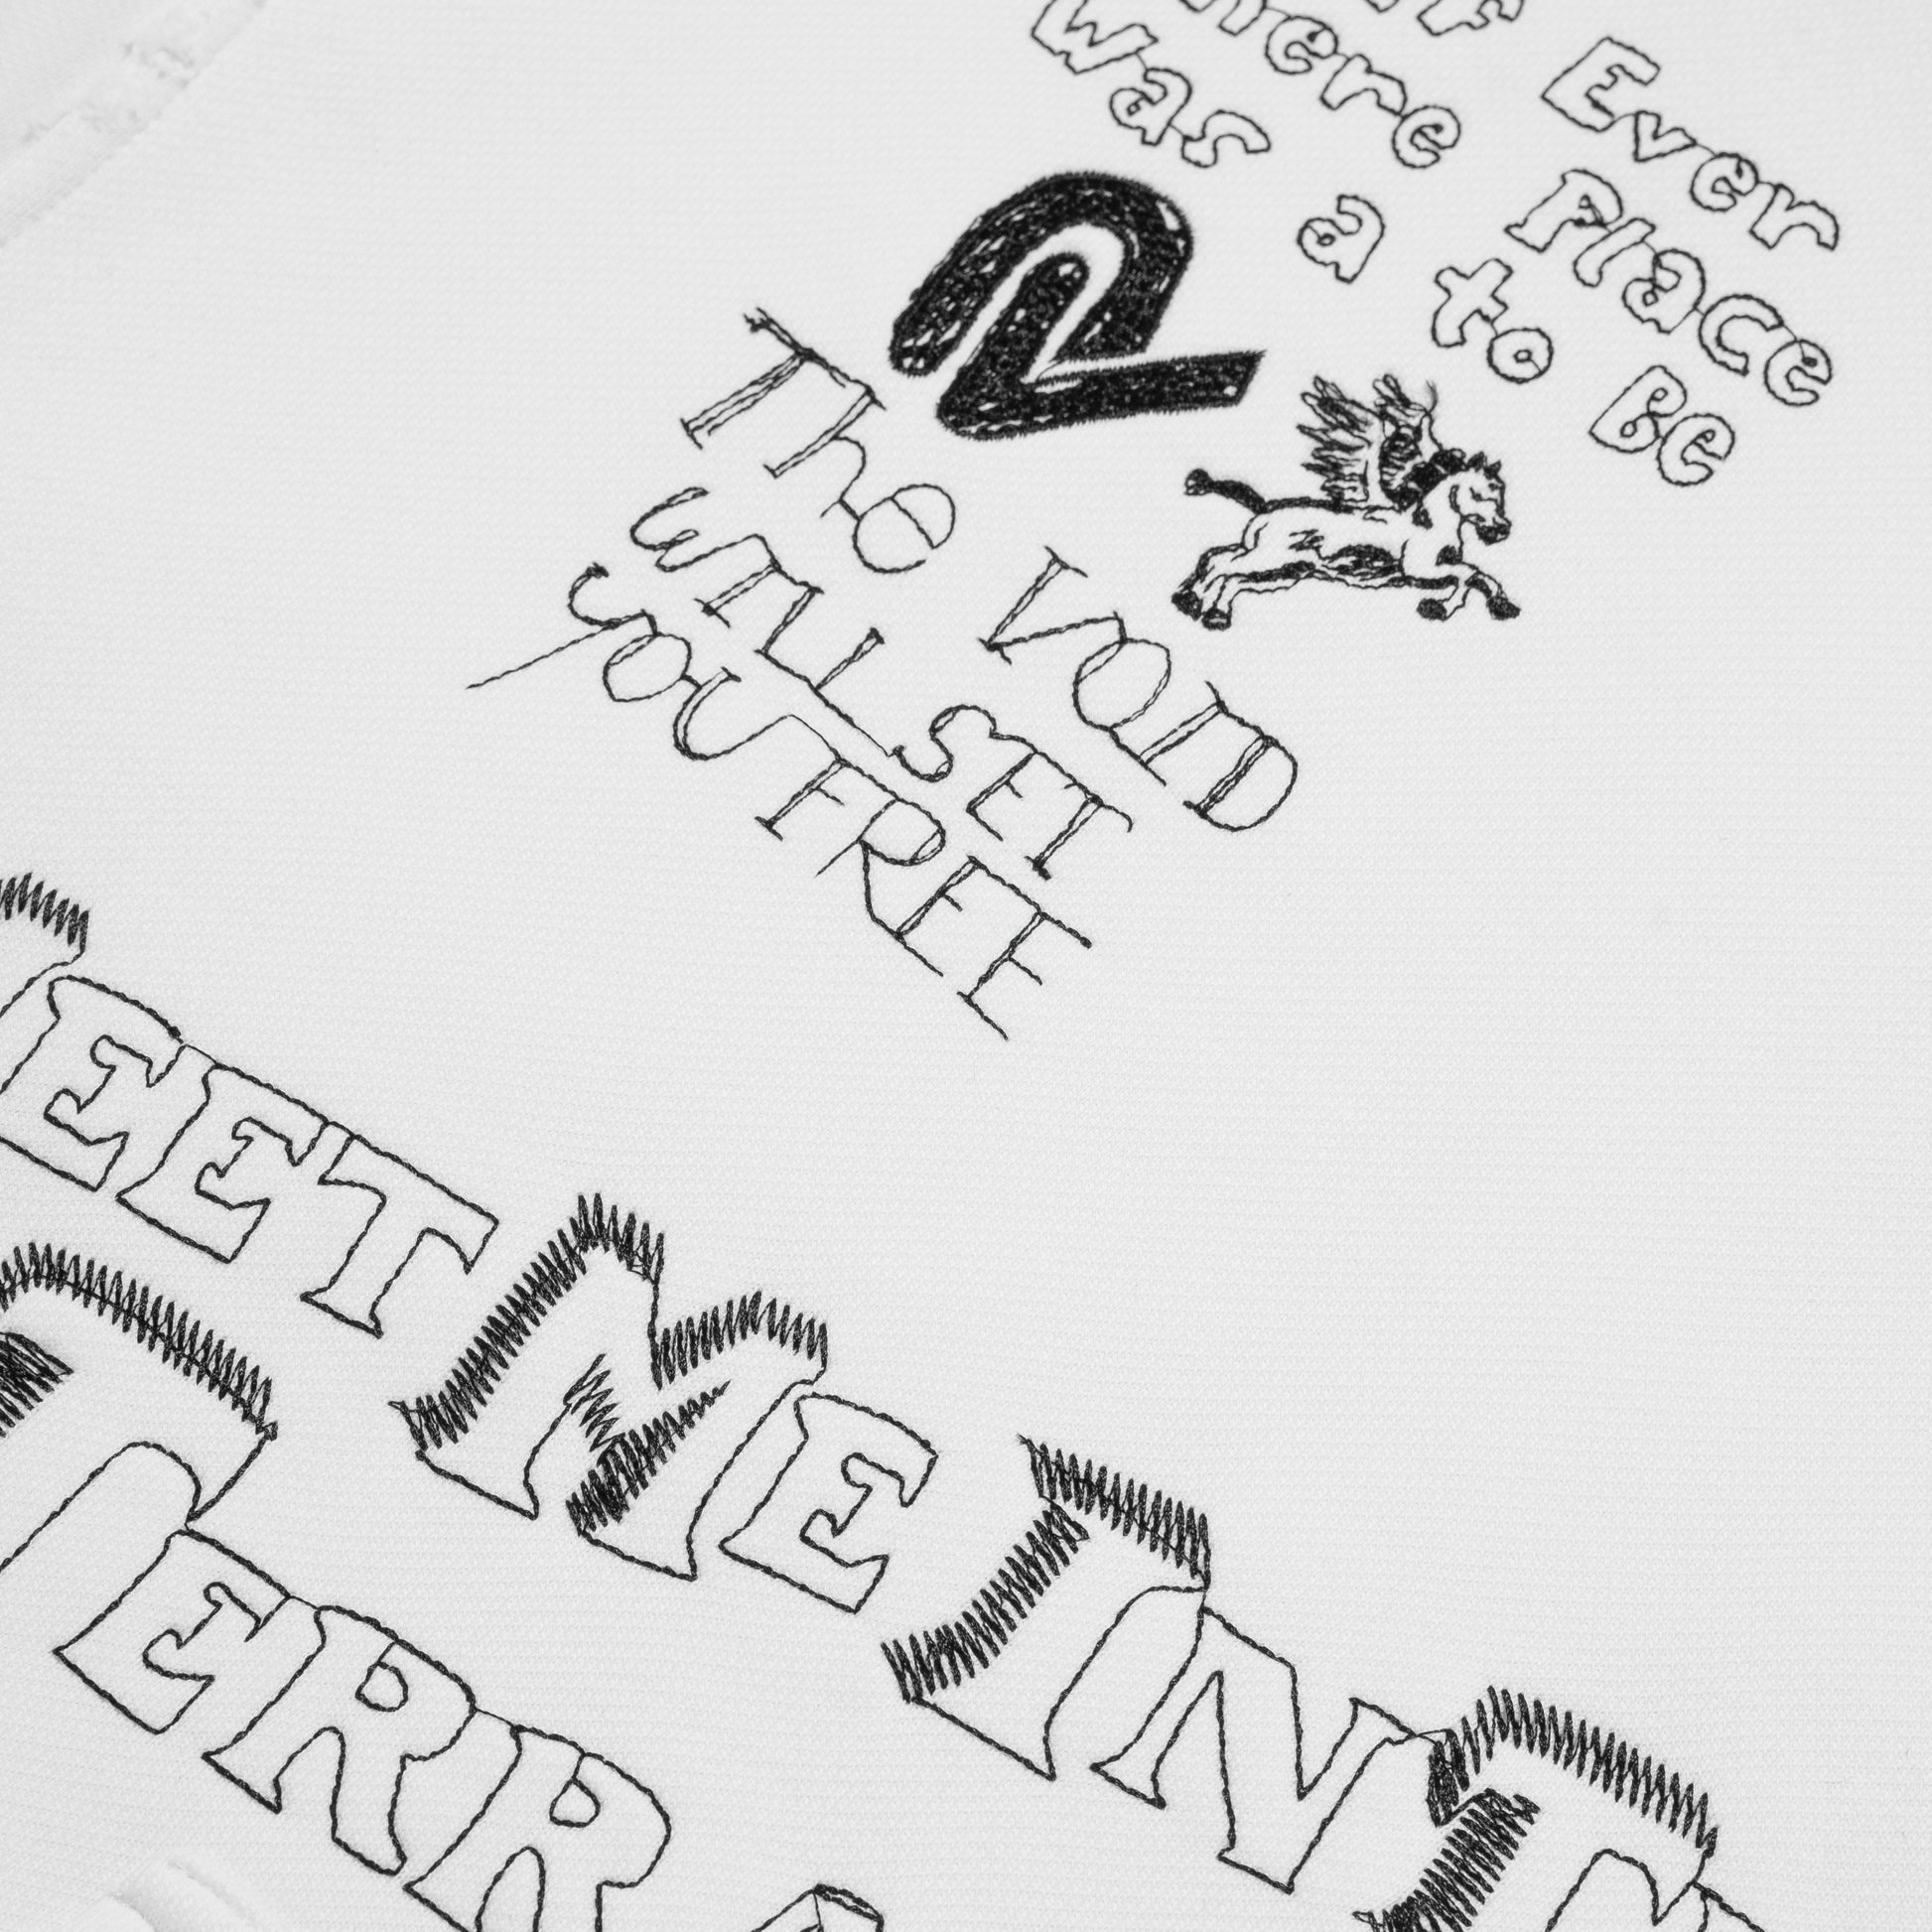 if Ever
here Place
was a to Be
2
The VOID
WILL SET
YOU FREE
EET ME IN T
TERRA